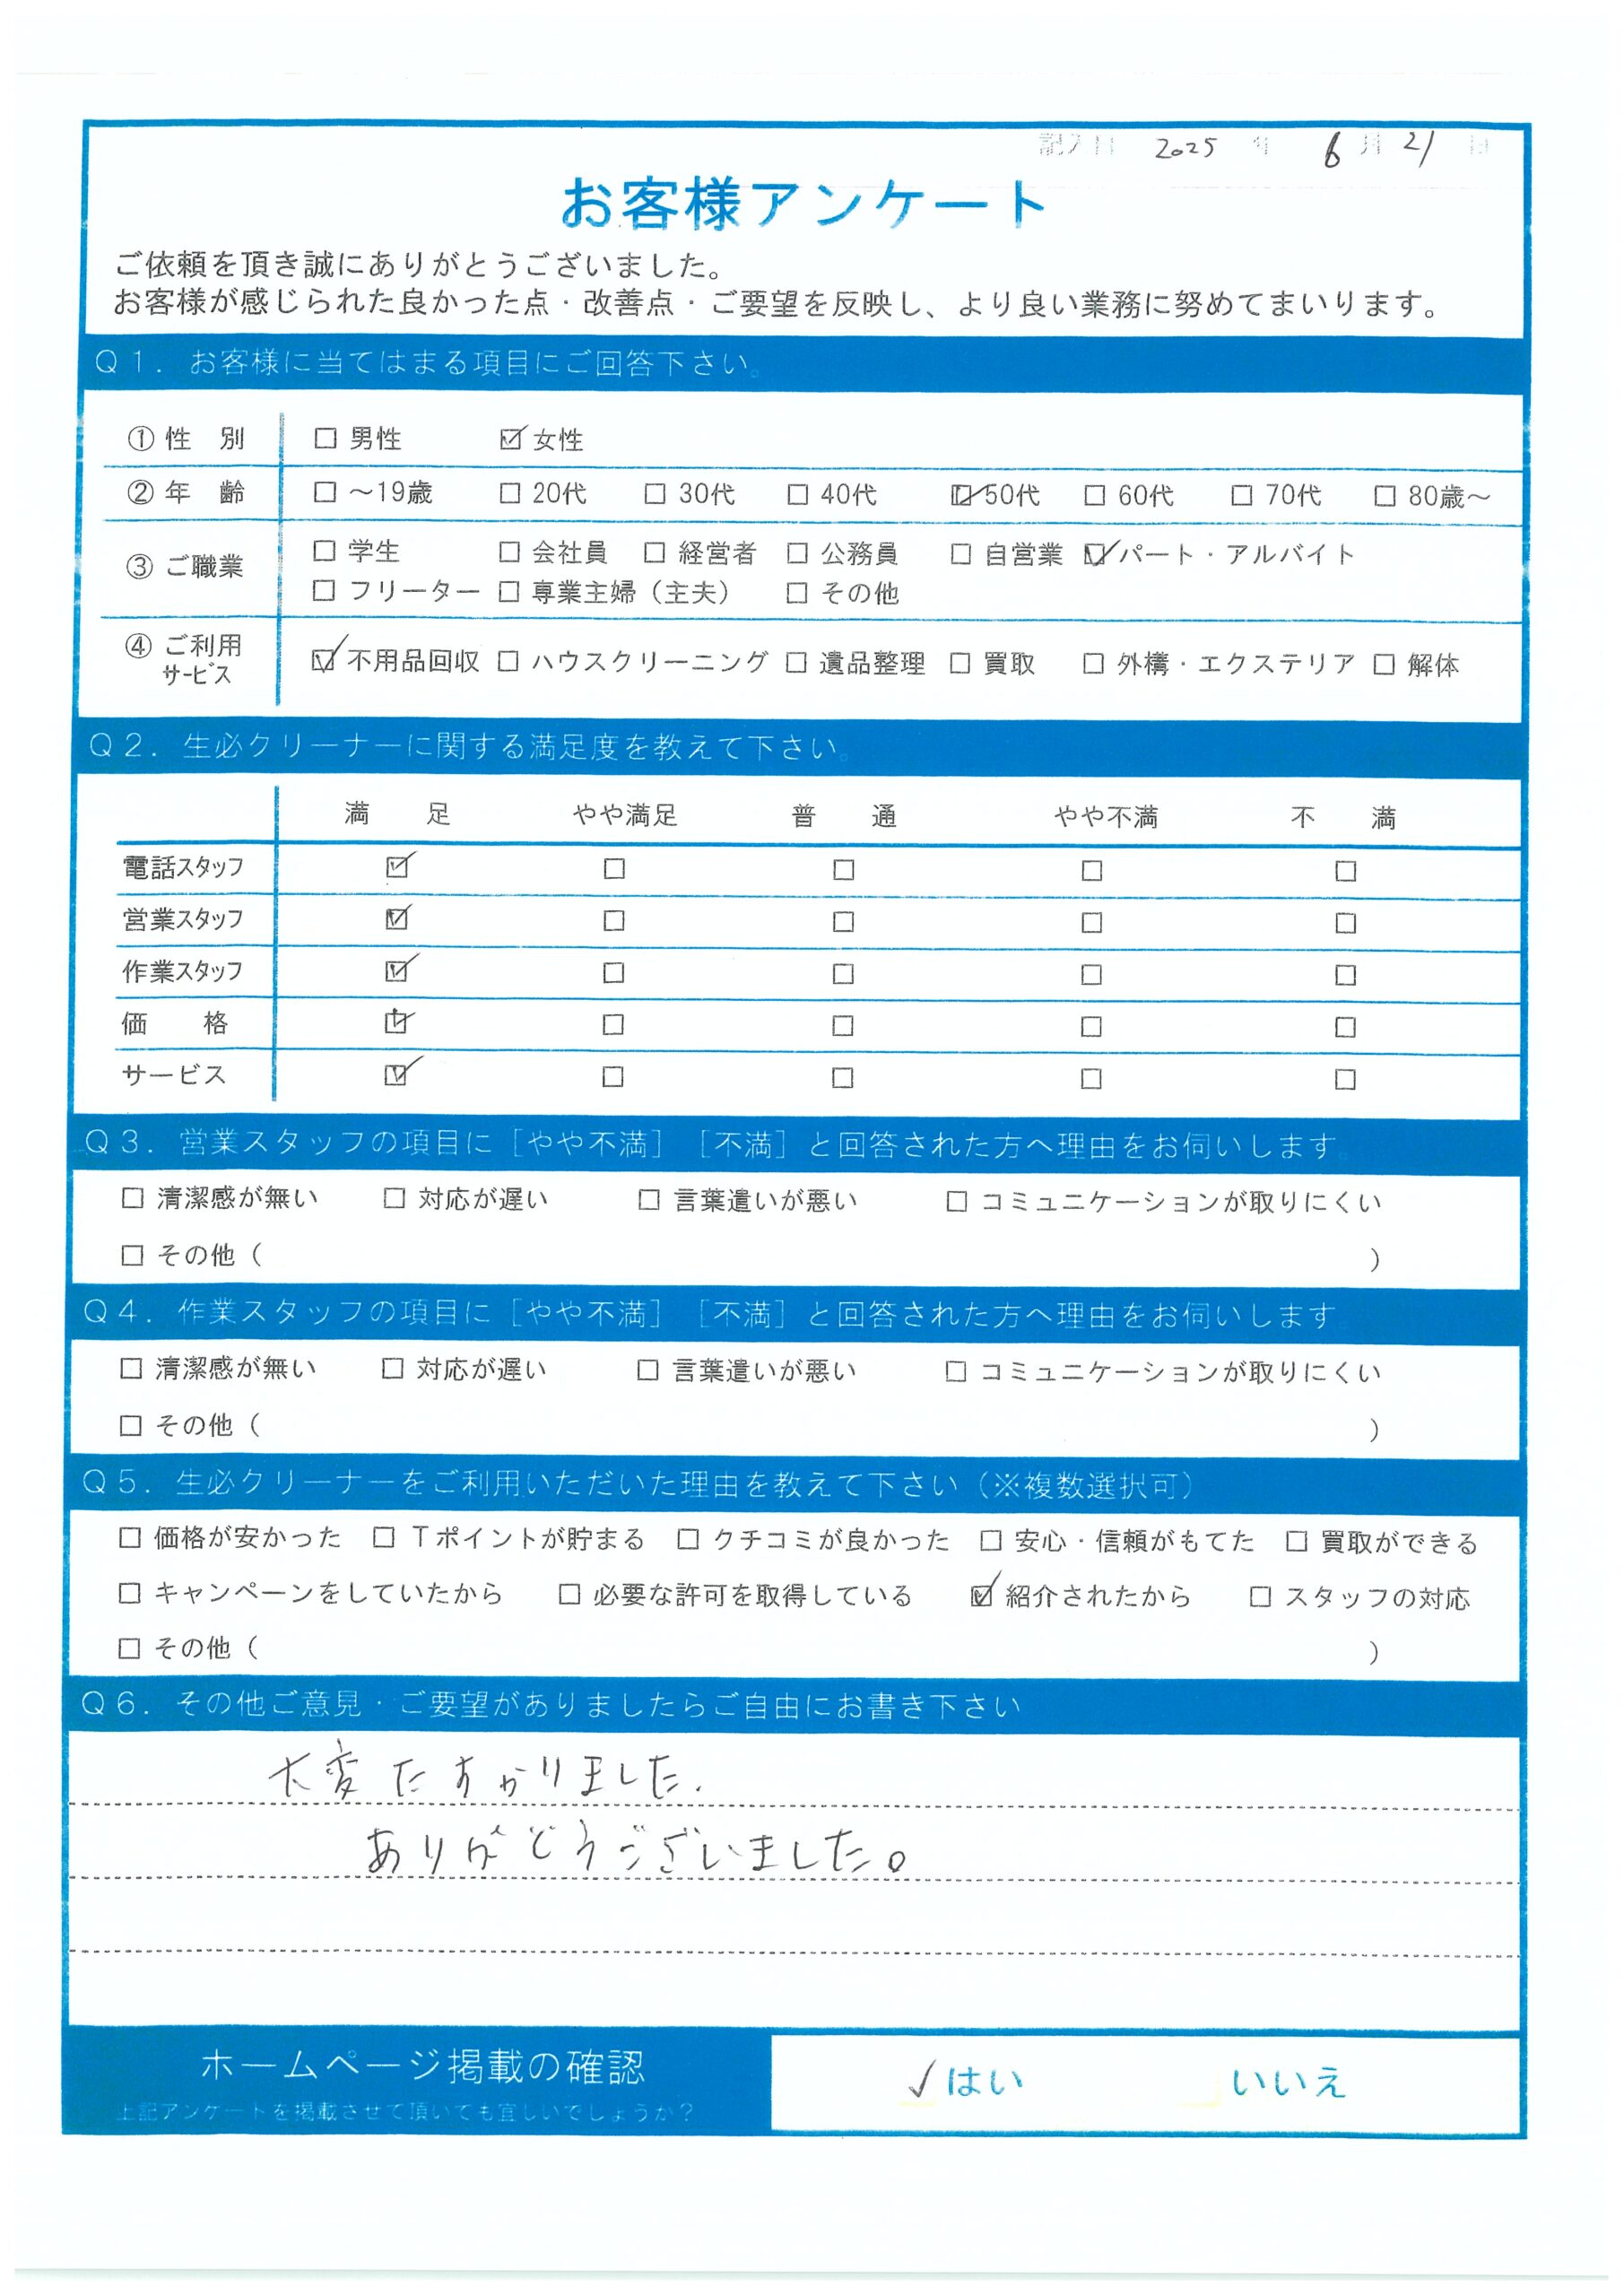 記入日 2025 年 6 月 21 日
お客様アンケート
ご依頼を頂き誠にありがとうございました。
お客様が感じられた良かった点・改善点・ご要望を反映し、より良い業務に努めてまいります。
Q1. お客様に当てはまる項目にご回答下さい。
① 性 別 □ 男性 ☑ 女性
② 年 齢 □ ～19歳 □ 20代 □ 30代 □ 40代 ☑ 50代 □ 60代 □ 70代 □ 80歳～
③ ご職業 □ 学生 □ 会社員 □ 経営者 □ 公務員 □ 自営業 ☑ パート・アルバイト
□ フリーター □ 専業主婦（主夫） □ その他
④ ご利用サービス ☑ 不用品回収 □ ハウスクリーニング □ 遺品整理 □ 買取 □ 外構・エクステリア □ 解体
Q2. 生必クリーナーに関する満足度を教えて下さい。
満 足 やや満足 普 通 やや不満 不 満
電話スタッフ ☑ □ □ □ □
営業スタッフ ☑ □ □ □ □
作業スタッフ ☑ □ □ □ □
価 格 ☑ □ □ □ □
サービス ☑ □ □ □ □
Q3. 営業スタッフの項目に［やや不満］［不満］と回答された方へ理由をお伺いします。
□ 清潔感が無い □ 対応が遅い □ 言葉遣いが悪い □ コミュニケーションが取りにくい
□ その他（ ）
Q4. 作業スタッフの項目に［やや不満］［不満］と回答された方へ理由をお伺いします
□ 清潔感が無い □ 対応が遅い □ 言葉遣いが悪い □ コミュニケーションが取りにくい
□ その他（ ）
Q5. 生必クリーナーをご利用いただいた理由を教えて下さい（※複数選択可）
□ 価格が安かった □ Tポイントが貯まる □ クチコミが良かった □ 安心・信頼がもてた □ 買取ができる
□ キャンペーンをしていたから □ 必要な許可を取得している ☑ 紹介されたから □ スタッフの対応
□ その他（ ）
Q6. その他ご意見・ご要望がありましたらご自由にお書き下さい
大変たすかりました.
ありがどうございました。
ホームページ掲載の確認 ✓はい いいえ
上記アンケートを掲載させて頂いても宜しいでしょうか？